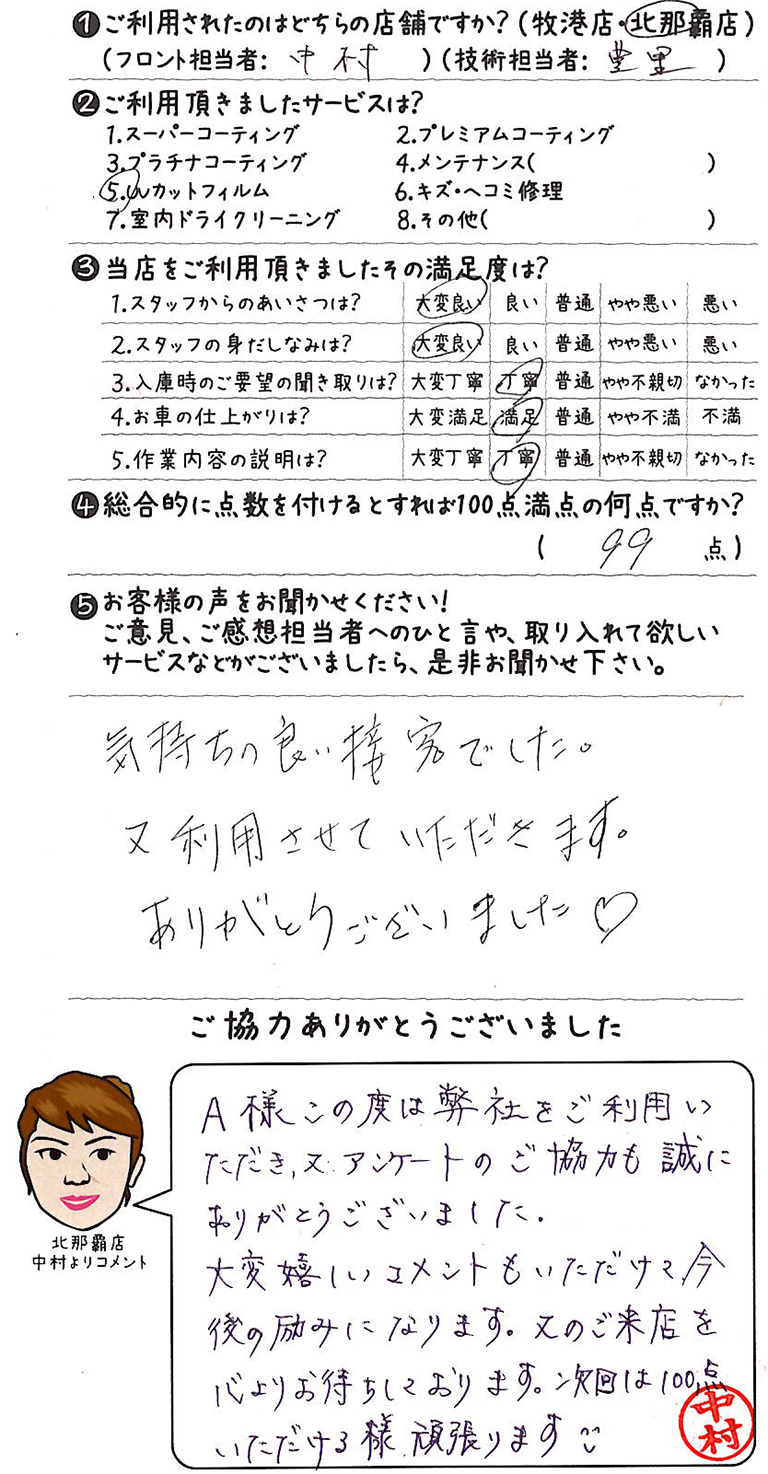 ❶ご利用されたのはどちらの店舗ですか?(牧港店・北那覇店)
(フロント担当者: 中村 )(技術担当者: 當里 )
❷ご利用頂きましたサービスは?
1.スーパーコーティング 2.プレミアムコーティング
3.プラチナコーティング 4.メンテナンス( )
5.UVカットフィルム 6.キズ・ヘコミ修理
7.室内ドライクリーニング 8.その他( )
❸当店をご利用頂きましたその満足度は?
1.スタッフからのあいさつは? 大変良い 良い 普通 やや悪い 悪い
2.スタッフの身だしなみは? 大変良い 良い 普通 やや悪い 悪い
3.入庫時のご要望の聞き取りは? 大変丁寧 丁寧 普通 やや不親切 なかった
4.お車の仕上がりは? 大変満足 満足 普通 やや不満 不満
5.作業内容の説明は? 大変丁寧 丁寧 普通 やや不親切 なかった
❹総合的に点数を付けるとすれば100点満点の何点ですか?
( 99 点)
❺お客様の声をお聞かせください!
ご意見、ご感想担当者へのひと言や、取り入れて欲しい
サービスなどがございましたら、是非お聞かせ下さい。
気持ちの良い接客でした。
又利用させていただきます。
ありがとうございました♡
ご協力ありがとうございました
A様この度は弊社をご利用い
ただき、又、アンケートのご協力も誠に
ありがとうございました.
大変嬉しいコメントもいただけて、今
後の励みになります。又のご来店を
心よりお待ちしております。次回は100点
いただける様、頑張ります
北那覇店
中村よりコメント
中村